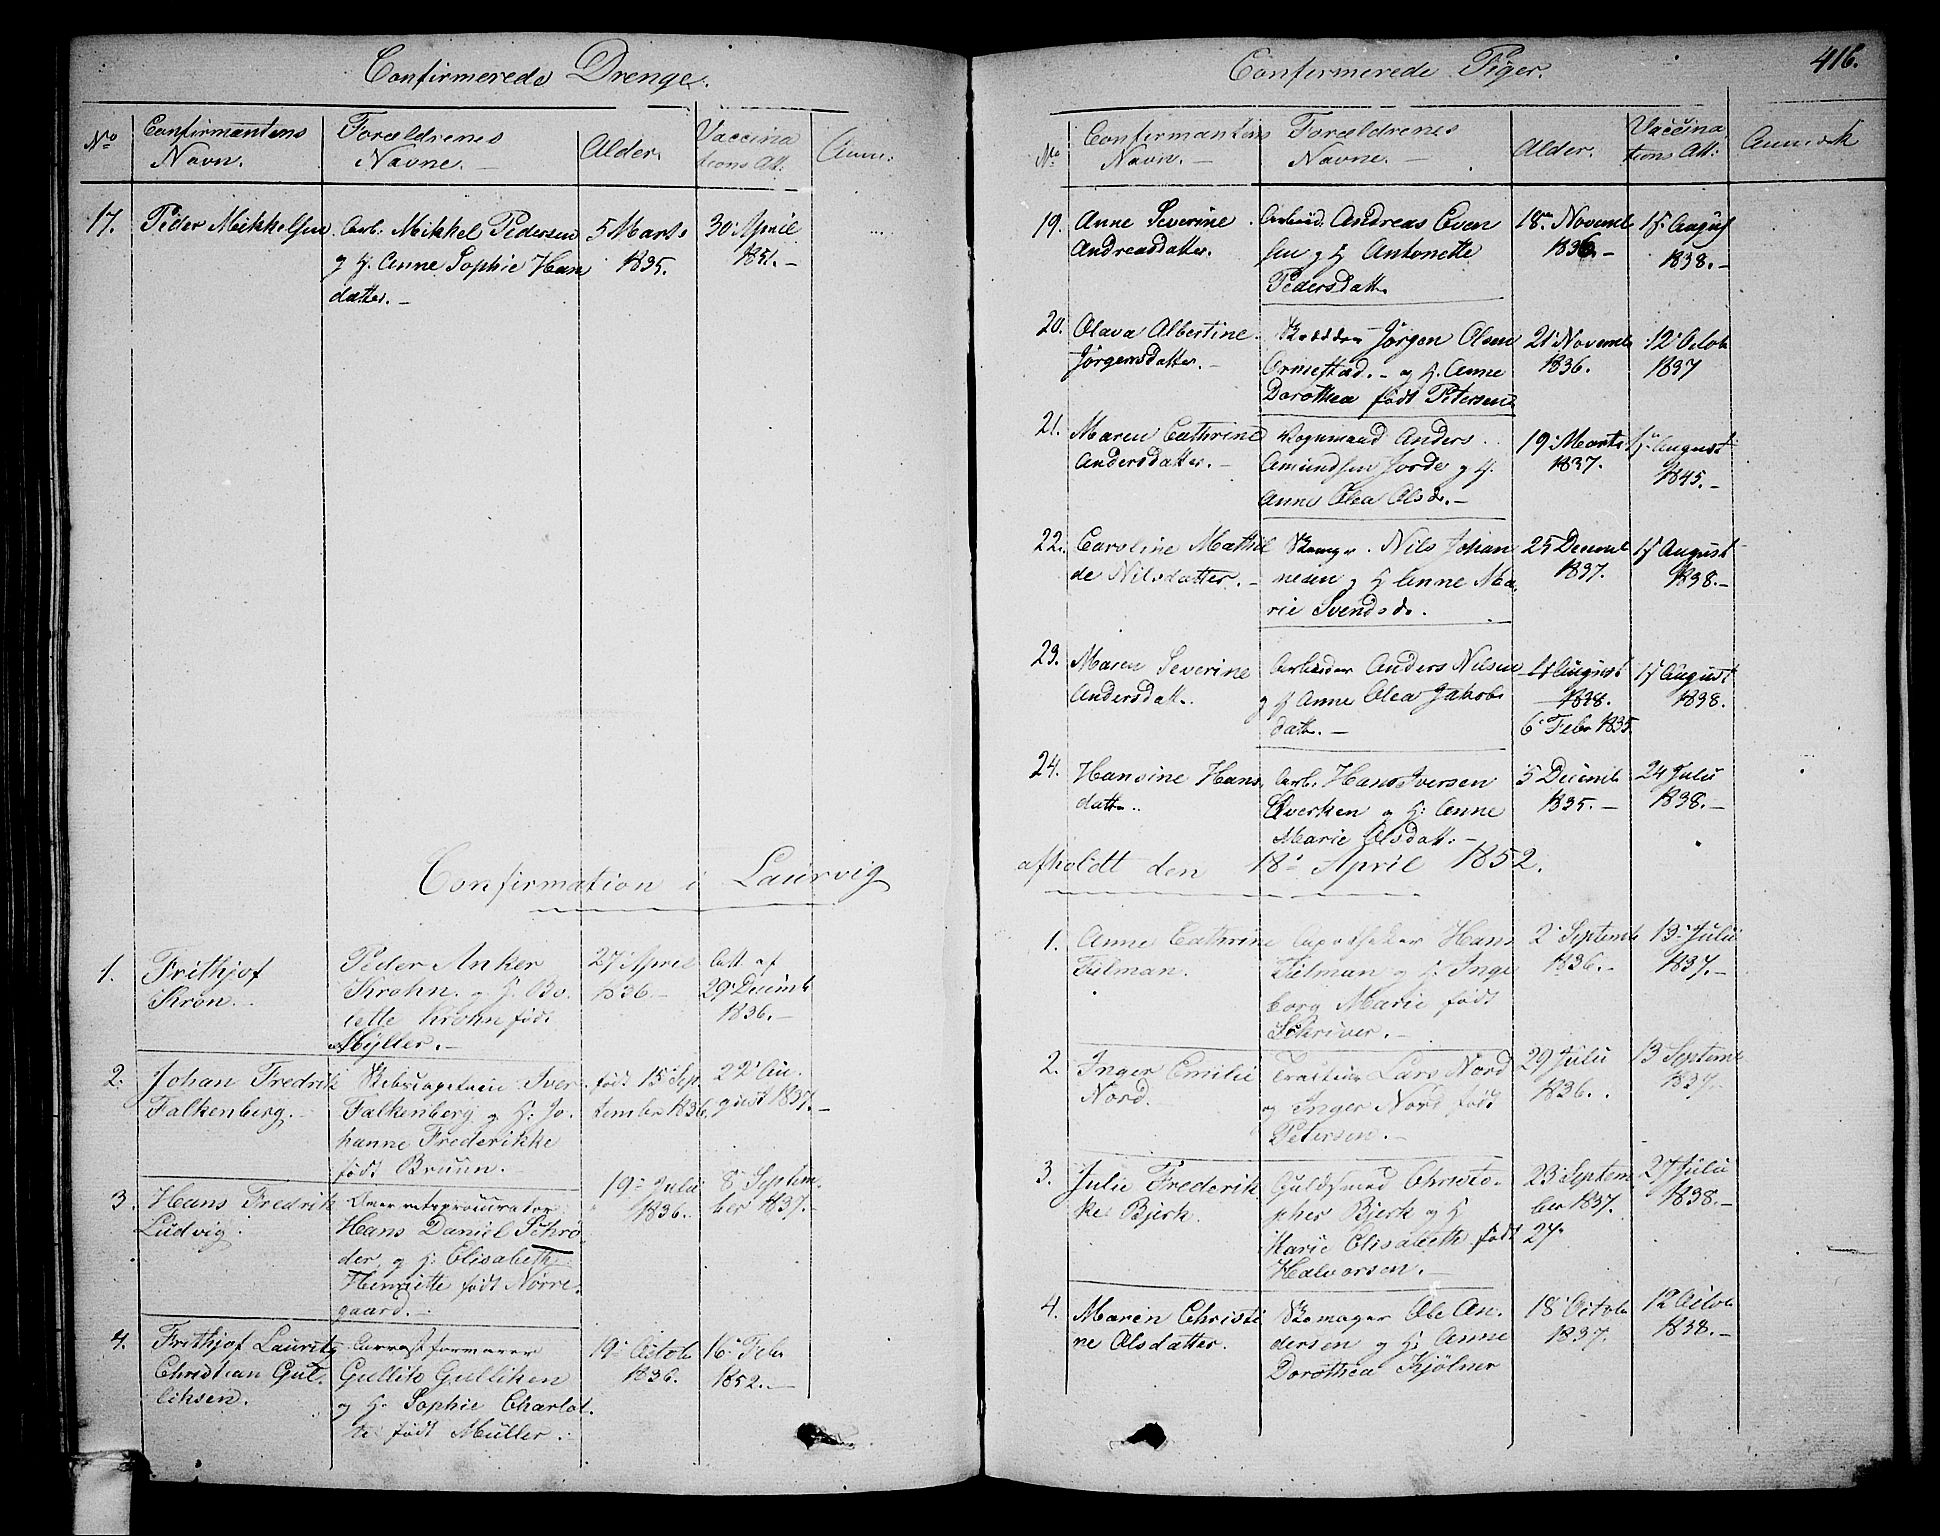 Confirmerede Drenge.
No
Confirmantens
Navn.
Forældrenes
Navne. —
Alder.
Vaccina
tions Att:
Anm:
17. Peder Mikkelsen
Arb. Mikkel Pedersen
og H. Anne Sophie Hans
datter. —
5 Marts
1835.
30 April
1851. —
Confirmation i Laurvig
1. Frithjof
Kron. —
Peder Anker
Krohn. og H. Bo-
lette Krohn født
Mÿller. —
27 April
1836. —
Att af
29 Decemb
1836. —
2. Johan Fredrik
Falkenberg. —
Iver
Falkenberg og H: Jo-
hanne Frederikke
født Bruun. —
født 15 Sep.
tember 1836.
22 Au-
gust 1837. —
3. Hans Fredrik
Ludvig.
Overretsprocurator
Hans Daniel Schrø-
der, og H: Elisabeth
Henriette født Nørre-
gaard. —
19 Julii
1836.
8 Septem-
ber 1837. —
4. Frithjof Lauritz
Christian Gul-
liksen.
Gullik Gulliksen
og H. Sophie Charlot-
te født Müller. —
19 Octob
1836.
16 Febr
1852. —
Confirmerede Piger.
416.
No
Confirmantens
Navn. —
Forældrenes
Navne. —
Alder.
Vaccina
tions Att:
Anmærk
19. Anne Severine
Andreasdatter.
Arbeid. Andreas Even
sen og H Antonette
Pedersdatt.
18 Novemb
1836. —
15 August
1838. —
20. Olava Albertine
Jørgensdatter. —
Jørgen Olsen
Ormestad. — og H. Anne
Dorothea født Petersen
21 Novemb
1836.
12 Octob
1837
21. Maren Cathrine
Andersdatter. —
Vognmand Anders
Amundsen Jorde og H.
Anne Olea Olsd. —
19 Marts
1837.
August
1845. —
22. Caroline Mathil
de Nilsdatter. —
Skomager. Nils Johan
nesen og H Anne Ma-
rie Svendsd.
25 Decemb
1837.
15 August
1838. —
23. Maren Severine
Andersdatt.
Arbeider Anders Nilsen
og H Anne Olea Jakobs
datt. —
4 August
1838.
6 Febr 1835.
15 August
1838.
24. Hansine Hans
datt.
Arb. Hans Iversen
og H: Anne
Marie Olsdatt. —
5 Decemb
1835. —
24 Julii
1838. —
afholdt den 18 April 1852.
1. Anne Cathrine
Tülman.
Apotheker Hans
Tülman og H. Inge
borg Marie født
Schriver. —
2 Septemb
1836. —
13 Julii
1837. —
2. Inger Emilie
Nord.
Lars Nord
og Inger Nord født
Petersen. —
29 Julii
1836.
13 Septemb
1837. —
3. Julie Frederik
ke Bjerk.
Guldsmed Christo-
pher Bjerk og H
Marie Elisabeth født
Halvorsen. —
23 Septem
ber 1837.
24
27 Julii
1838. —
4. Maren Christi
ne Olsdatter.
Skomager Ole An-
dersen og H. Anne
Dorothea Kjølner
18 Octob
1837.
12 Octob
1838. —